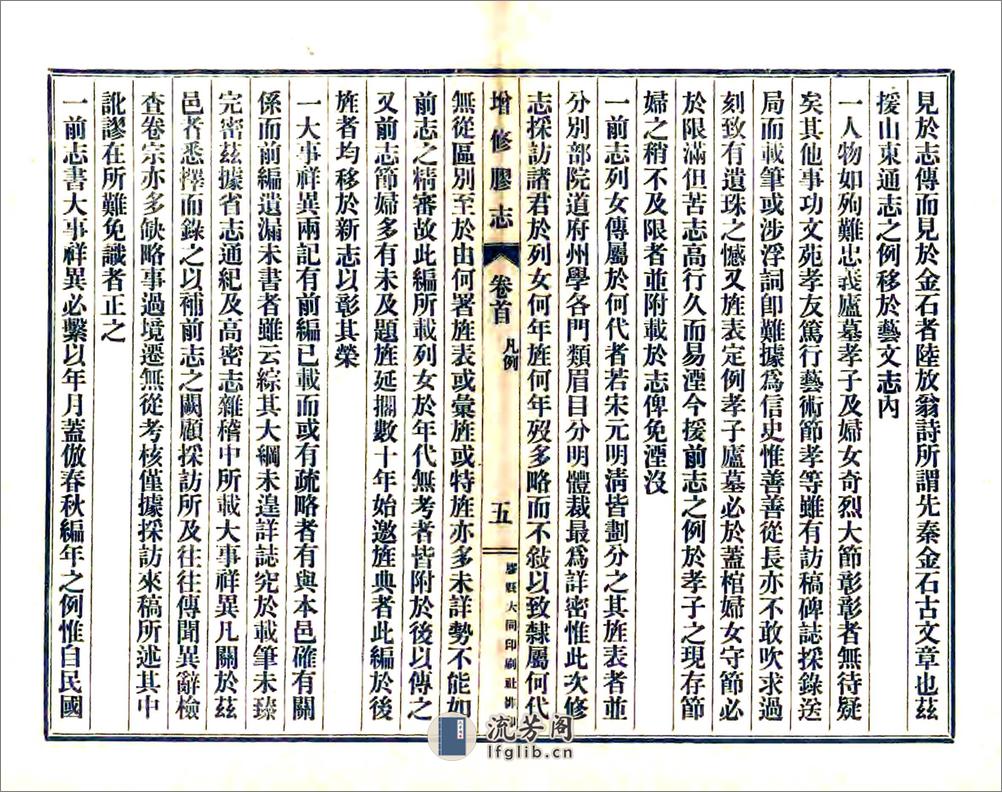 見於志傳而見於金石者陸放翁詩所謂先秦金石古文章也茲
援山東通志之例移於藝文志內
一人物如殉難忠義廬墓孝子及婦女奇烈大節彰彰者無待疑
矣其他事功文苑孝友篤行藝術節孝等雖有訪稿碑誌採錄送
局而載筆或涉浮詞卽難據爲信史惟善善從長亦不敢吹求過
刻致有遺珠之憾又旌表定例孝子廬墓必於蓋棺婦女守節必
於限滿但苦志高行久而易湮今援前志之例於孝子之現存節
婦之稍不及限者並附載於志俾免湮沒
一前志列女傳屬於何代者若宋元明淸皆劃分之其旌表者並
分別部院道府州學各門類眉目分明體裁最爲詳密惟此次修
志採訪諸君於列女何年旌何年歿多略而不敍以致隸屬何代
增修膠志
卷首
凡例
五
膠縣大同印刷社排
無從區別至於由何署旌表或彙旌或特旌亦多未詳勢不能如
前志之精審故此編所載列女於年代無考者皆附於後以傳之
又前志節婦多有未及題旌延擱數十年始邀旌典者此編於後
旌者均移於新志以彰其榮
一大事祥異兩記有前編已載而或有疏略者有與本邑確有關
係而前編遺漏未書者雖云綜其大綱未遑詳誌究於載筆未臻
完密茲據省志通紀及高密志雜稽中所載大事祥異凡關於茲
邑者悉擇而錄之以補前志之闕顧採訪所及往往傳聞異辭檢
查卷宗亦多缺略事過境遷無從考核僅據採訪來稿所述其中
訛謬在所難免識者正之
一前志書大事祥異必繫以年月蓋倣春秋編年之例惟自民國
流芳阁
lfglib.cn